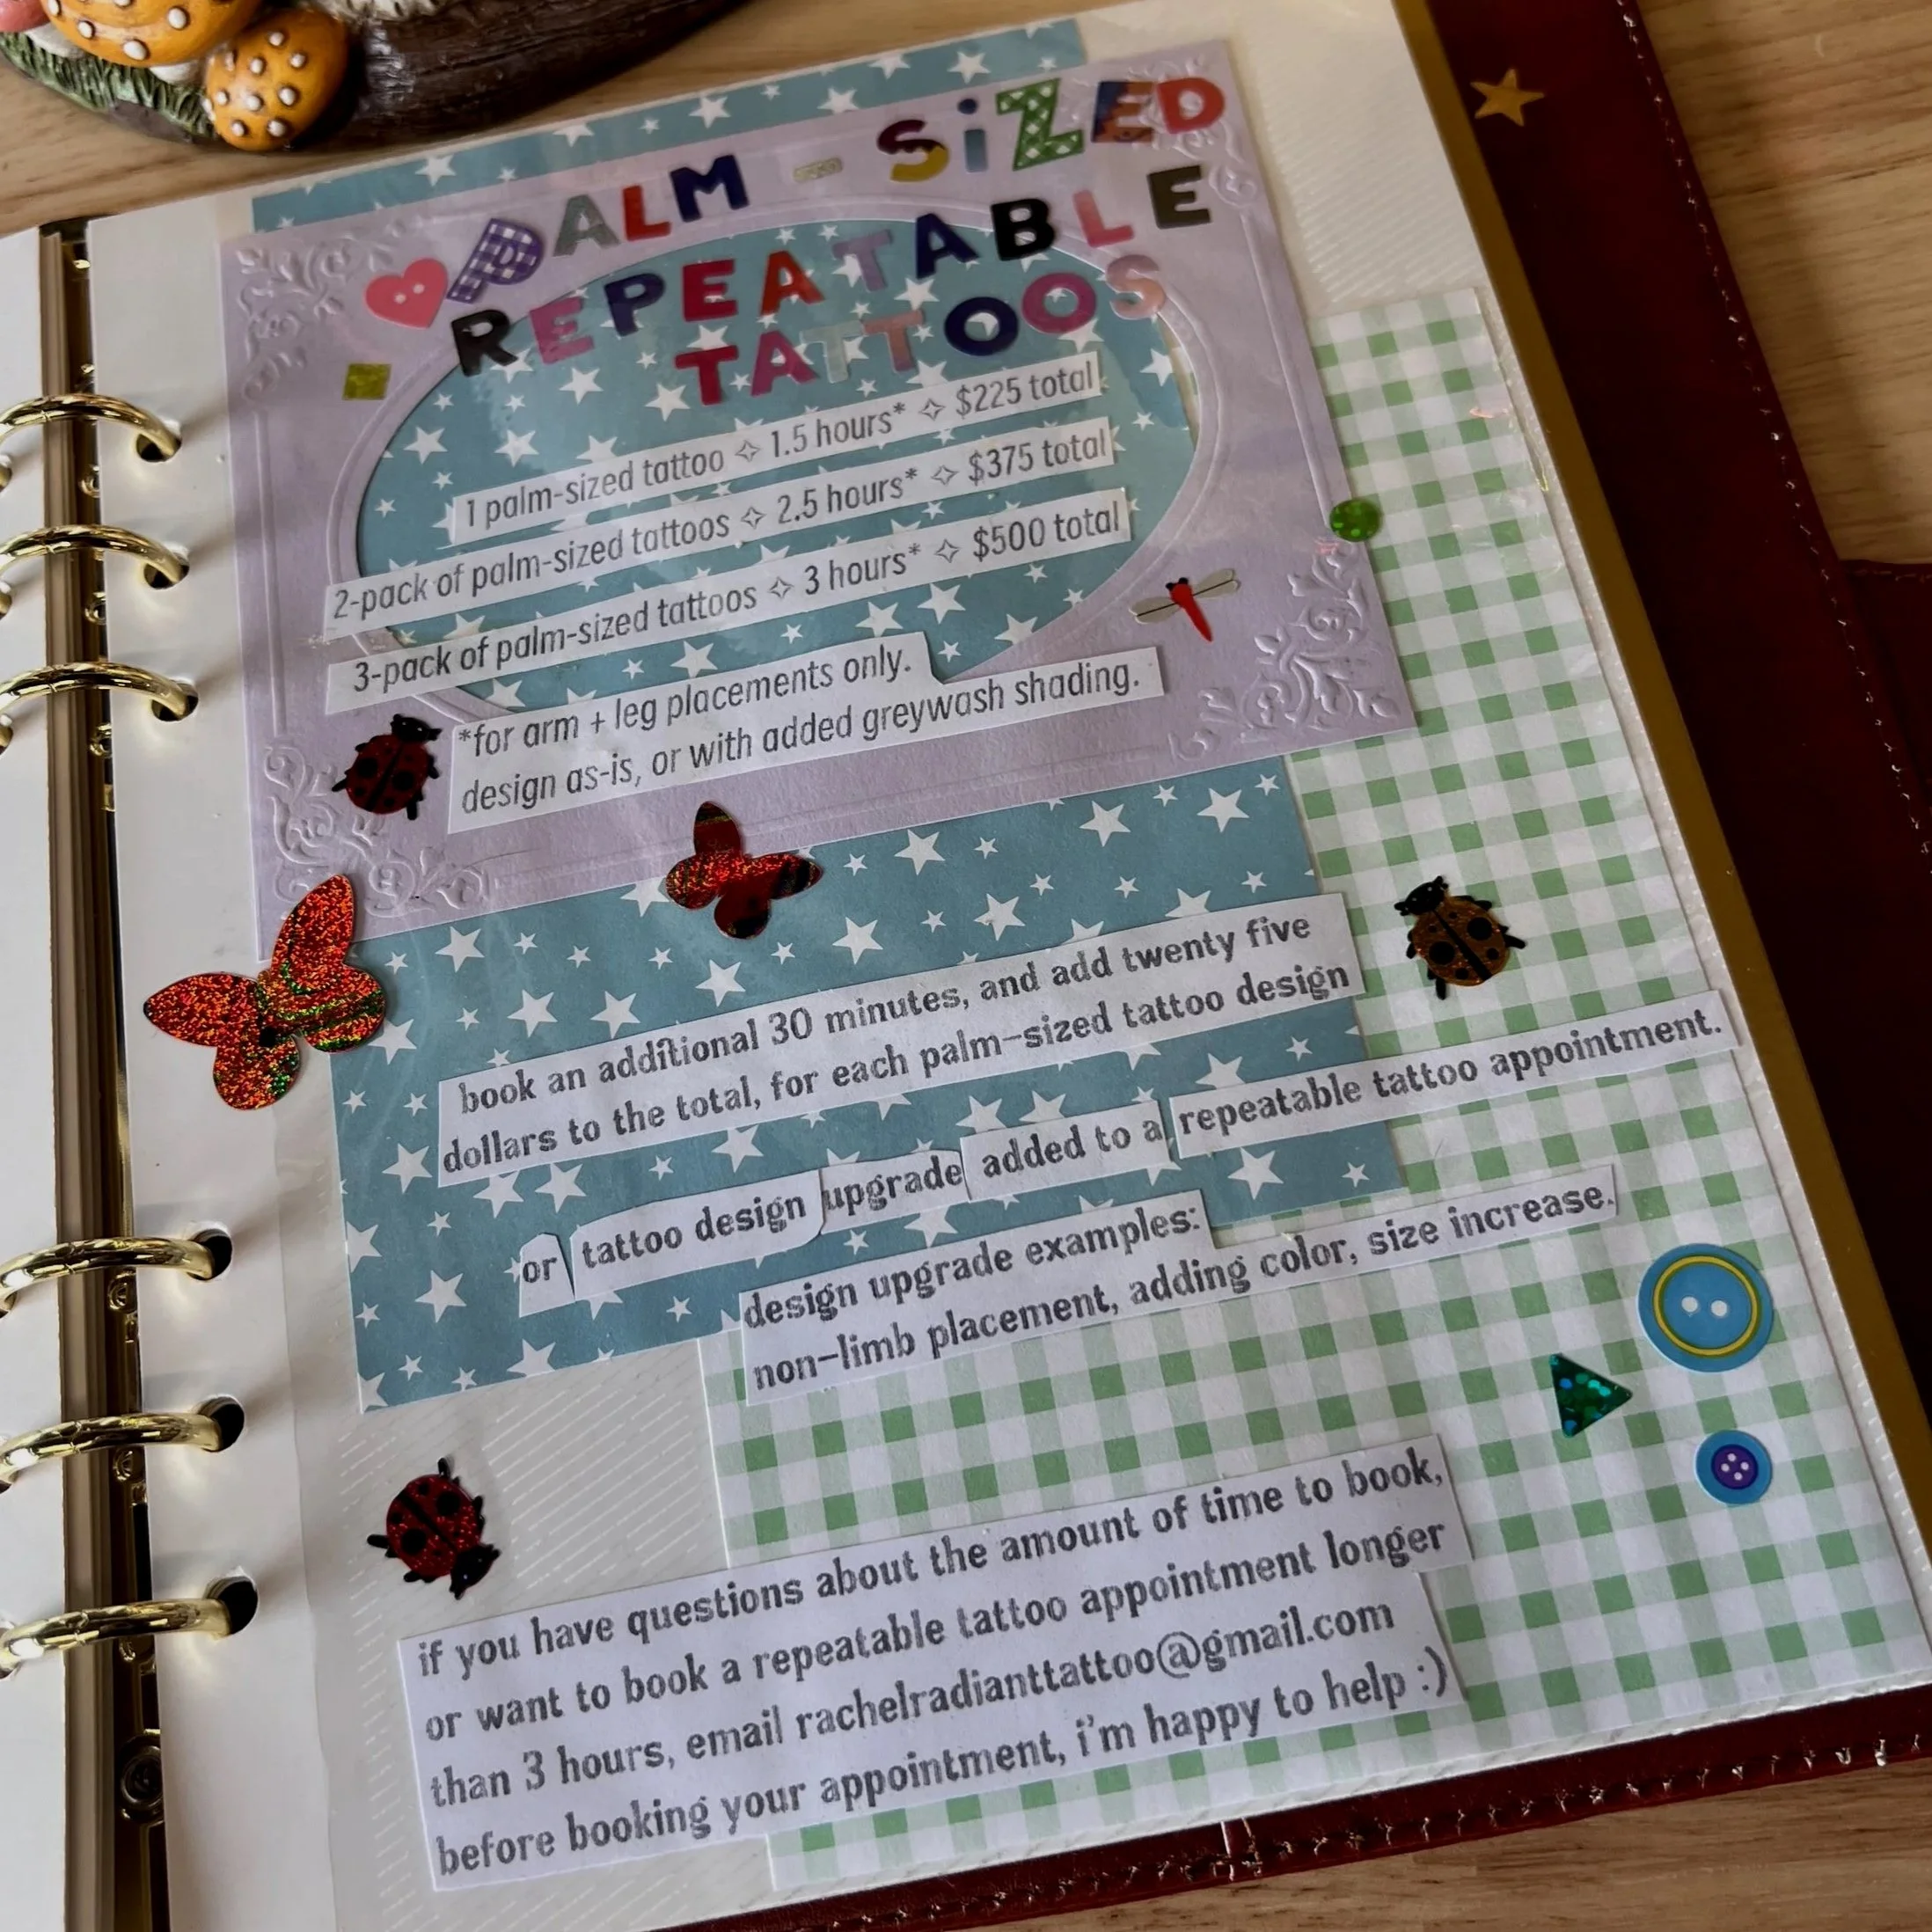 PALM - SiZED
REPEATABLE
TATTOOS
1 palm-sized tattoo ✧ 1.5 hours* ✧ $225 total
2-pack of palm-sized tattoos ✧ 2.5 hours* ✧ $375 total
3-pack of palm-sized tattoos ✧ 3 hours* ✧ $500 total
*for arm + leg placements only.
design as-is, or with added greywash shading.
book an additional 30 minutes, and add twenty five
dollars to the total, for each palm-sized tattoo design
or tattoo design upgrade added to a repeatable tattoo appointment.
design upgrade examples:
non-limb placement, adding color, size increase.
if you have questions about the amount of time to book,
or want to book a repeatable tattoo appointment longer
than 3 hours, email rachelradianttattoo@gmail.com
before booking your appointment, i'm happy to help :)